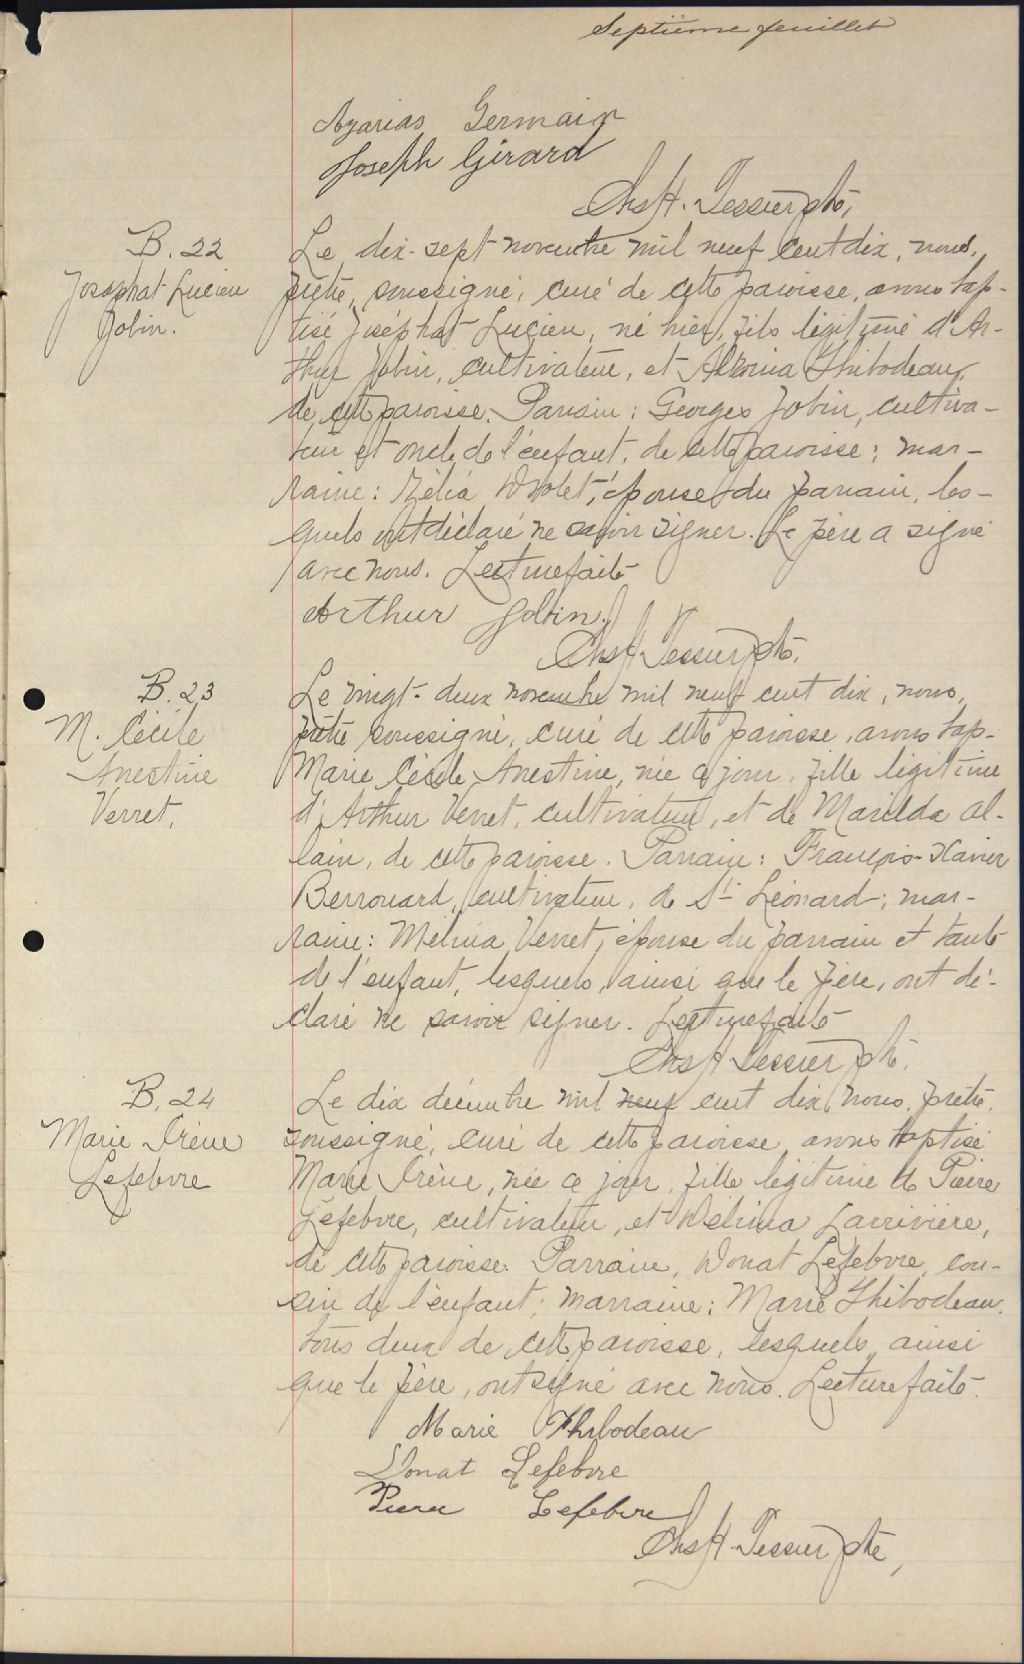 Septième feuillet
Azarias Germain
Joseph Girard
Chs H. Tessier ptre,
B. 22
Josaphat Lucien
Jobin.
Le dix-sept novembre mil neuf cent dix, nous,
prêtre soussigné, curé de cette paroisse, avons bap-
tisé Joséphat Lucien, né hier, fils légitime d'Ar-
thur Jobin, cultivateur, et Albina Thibodeau,
de cette paroisse. Parrain: Georges Jobin, cultiva-
teur et oncle de l'enfant, de cette paroisse; mar-
raine: Zélia Drolet, épouse du parrain, les-
quels ont déclaré ne savoir signer. Le père a signé
avec nous. Lecture faite
Arthur Jobin.
Chs H. Tessier ptre.
B. 23
M. Cécile
Anestine
Verret.
Le vingt-deux novembre mil neuf cent dix, nous,
prêtre soussigné, curé de cette paroisse, avons bap-
Marie Cécile Anestine, née ce jour, fille légitime
d'Arthur Verret, cultivateur, et de Marilda Al-
lain, de cette paroisse. Parrain: François-Xavier
Berrouard, cultivateur, de St-Léonard; mar-
raine: Mélina Verret, épouse du parrain et tante
de l'enfant, lesquels, ainsi que le père, ont dé-
claré ne savoir signer. Lecture faite
Chs H Tessier ptre.
B. 24
Marie Irène
Lefebvre
Le dix décembre mil neuf cent dix, nous, prêtre,
soussigné, curé de cette paroisse, avons baptisé
Marie Irène, née ce jour, fille légitime de Pierre
Lefebvre, cultivateur, et Délina Larrivière,
de cette paroisse. Parrain, Donat Lefebvre, cou-
sin de l'enfant; marraine: Marie Thibodeau,
tous deux de cette paroisse, lesquels, ainsi
que le père, ont signé avec nous. Lecture faite.
Marie Thibodeau
Donat Lefebvre
Pierre Lefebvre
Chs H. Tessier ptre,